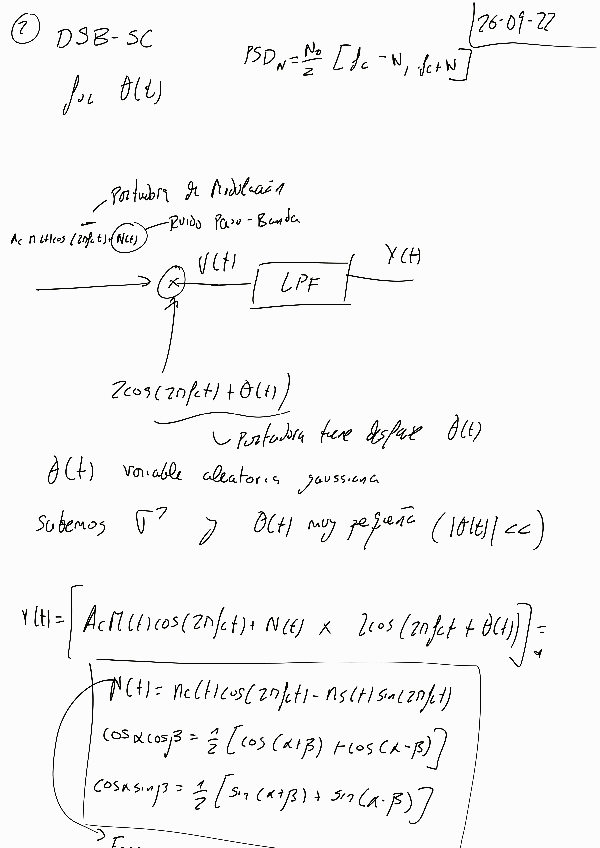 ② DSB-SC
26-09-22
PSD_N = N₀/2 [fc - W, fc + W]
θ(t)
Portadora de Modulación
Ruido Paso-Banda
Ac M(t)cos(2πfct)+N(t)
V(t)
Y(t)
x
LPF
2cos(2πfct)+θ(t))
Portadora tiene desfase θ(t)
θ(t) variable aleatoria gaussiana
Sabemos σ² y θ(t) muy pequeña (|θ(t)| <<)
Y(t) = [AcM(t)cos(2πfct)+N(t) x 2cos(2πfct+θ(t))] =
N(t) = nc(t)cos(2πfct) - ns(t)sin(2πfct)
cosαcosβ = 1/2 [cos(α+β) + cos(α-β)]
cosαsinβ = 1/2 [sin(α+β) + sin(α-β)]